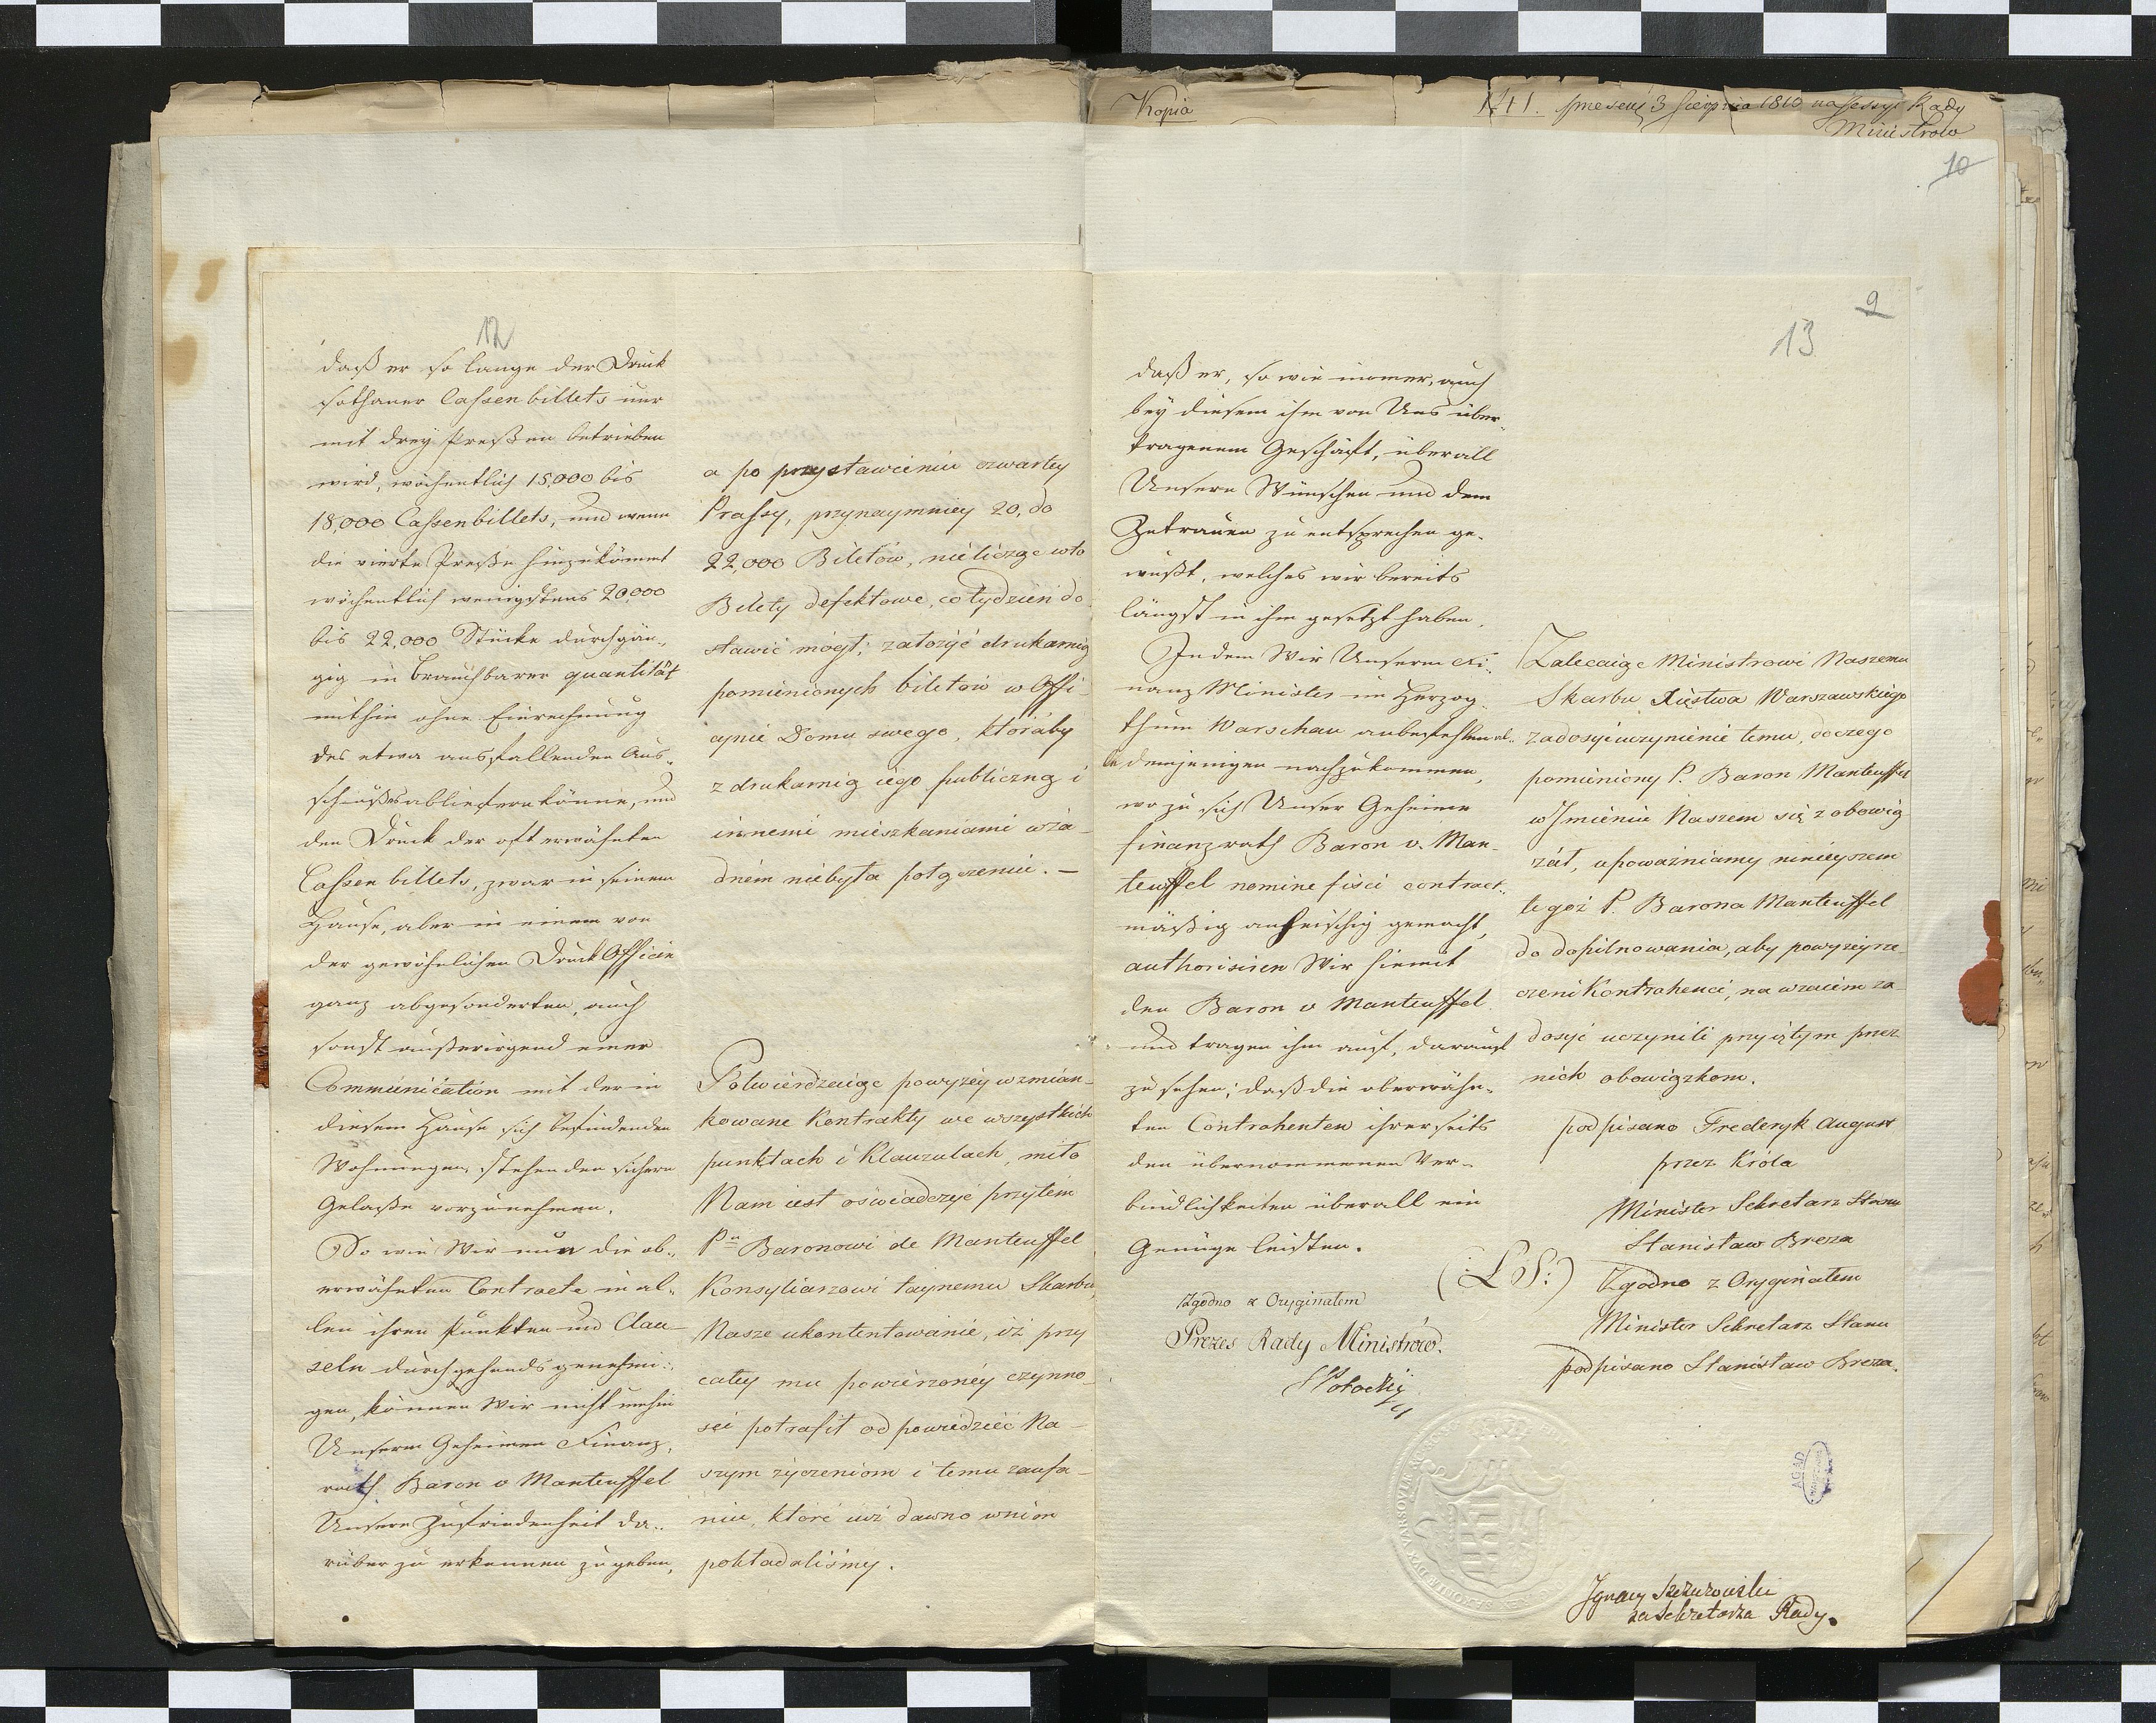 Kopia
1411. 3 Sierpnia 1810 na sessyi Rady
Ministrów
10
12
daß er so lange der Druck
sothaner Cassenbillets nur
mit drey Preßen betrieben
wird, wöchentlich 15,000 bis
18,000 Cassenbillets, und wenn
die vierte Preße hinzukömmt
wöchentlich wenigstens 20,000
bis 22,000 Stücke durchgän-
gig in brauchbarer quantität
mithin ohne Einrechnung
des etwa ausfallenden Aus-
schußes abliefern könne, und
den Druck der oft erwähnten
Cassenbillets, zwar in seinem
Hause, aber in einem von
der gewöhnlichen Druck Officin
ganz abgesonderten, auch
sonst außer irgend einer
Communication mit der in
diesem Hause sich befindenden
Wohnungen, stehenden sichern
Gelaße vorzunehmen.
So wie Wir nun die ob-
erwähnten Contracte in al-
len ihren Punkten und Clau-
seln durchgehends genehmi-
gen, können Wir nicht umhin
Unserm Geheimen Finanz-
rath Baron v Manteuffel
Unsere Zufriedenheit da-
rüber zu erkennen zu geben,
a po przystawieniu czwartey
Prassy, przynaymniey 20, do
22,000 Biletów, nielicząc wto
Bilety defektowe, co tydzień do-
stawić mógł; założyć drukarnią
pomienionych biletów w Offi-
cynie Domu swego, któraby
z drukarnią iego publiczną i
innemi mieszkaniami wża-
dném niebyła połączeniu. —
Potwierdzaiąc powyżéy wzmian-
kowane Kontrakty we wszystkich
punktach i Klauzulach, miło
Nam iest oświadczyć przytém
Pu Baronowi de Manteuffel
Konsyliarzowi taynemu Skarbu,
Nasze ukontentowanie, iż przy
całey mu powierzonéy czynno-
ści potrafił odpowiedzieć Na-
szym życzeniom i temu zaufa-
niu, które iuż dawno wnim
pokładaliśmy.
9
13
daß er, so wie immer, auch
bey diesem ihm von Uns über-
tragenem Geschäft, überall
Unsern Wünschen und dem
Zutrauen zu entsprechen ge-
wußt, welches wir bereits
längst in ihm gesetzt haben.
Indem Wir Unserm Fi-
nanz Minister im Herzog-
thum Warschau anbefehlen al-
le demjenigen nachzukommen,
wozu sich Unser Geheimer
Finanzrath Baron v. Man-
teuffel nomine fisci contract-
mäßig anheischig gemacht,
authorisiren Wir hiemit
den Baron v Manteuffel
und tragen ihm auf, darauf
zu sehen; daß die oberwähn-
ten Contrahenten ihrerseits
den übernommenen Ver-
bindlichkeiten überall ein
Genüge leisten.
Zgodno z Oryginałem
Prezes Rady Ministrów.
SPotocki
Zalecaiąc Ministrowi Naszemu
Skarbu Xięstwa Warszawskiego
zadosyć uczynienie temu, do czego
pomieniony P. Baron Manteuffel
w Imieniu Naszem się zobowią-
zał, upoważniamy ninieyszem
tegoż P. Barona Manteuffel
do dopilnowania, aby powyżéy rze-
czeni Kontrahenci, na wzaiem za-
dosyć uczynili przyiętym przez
nich obowiązkom.
podpisano Frederyk August
przez Króla
Minister Sekretarz Stanu
Stanisław Breza
(:L.S:)
Zgodno z Oryginałem
Minister Sekretarz Stanu
podpisano Stanisław Breza.
AGAD
Ignacy Szczurowski
za Sekretarza Rady.